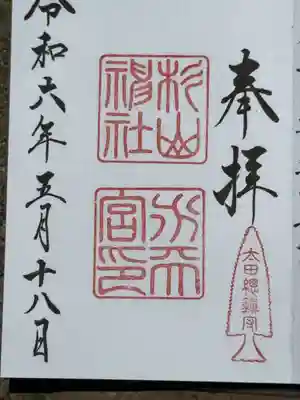 奉拝
太田總鎮守
杉山
神社
水天
宮印
令和六年五月十八日